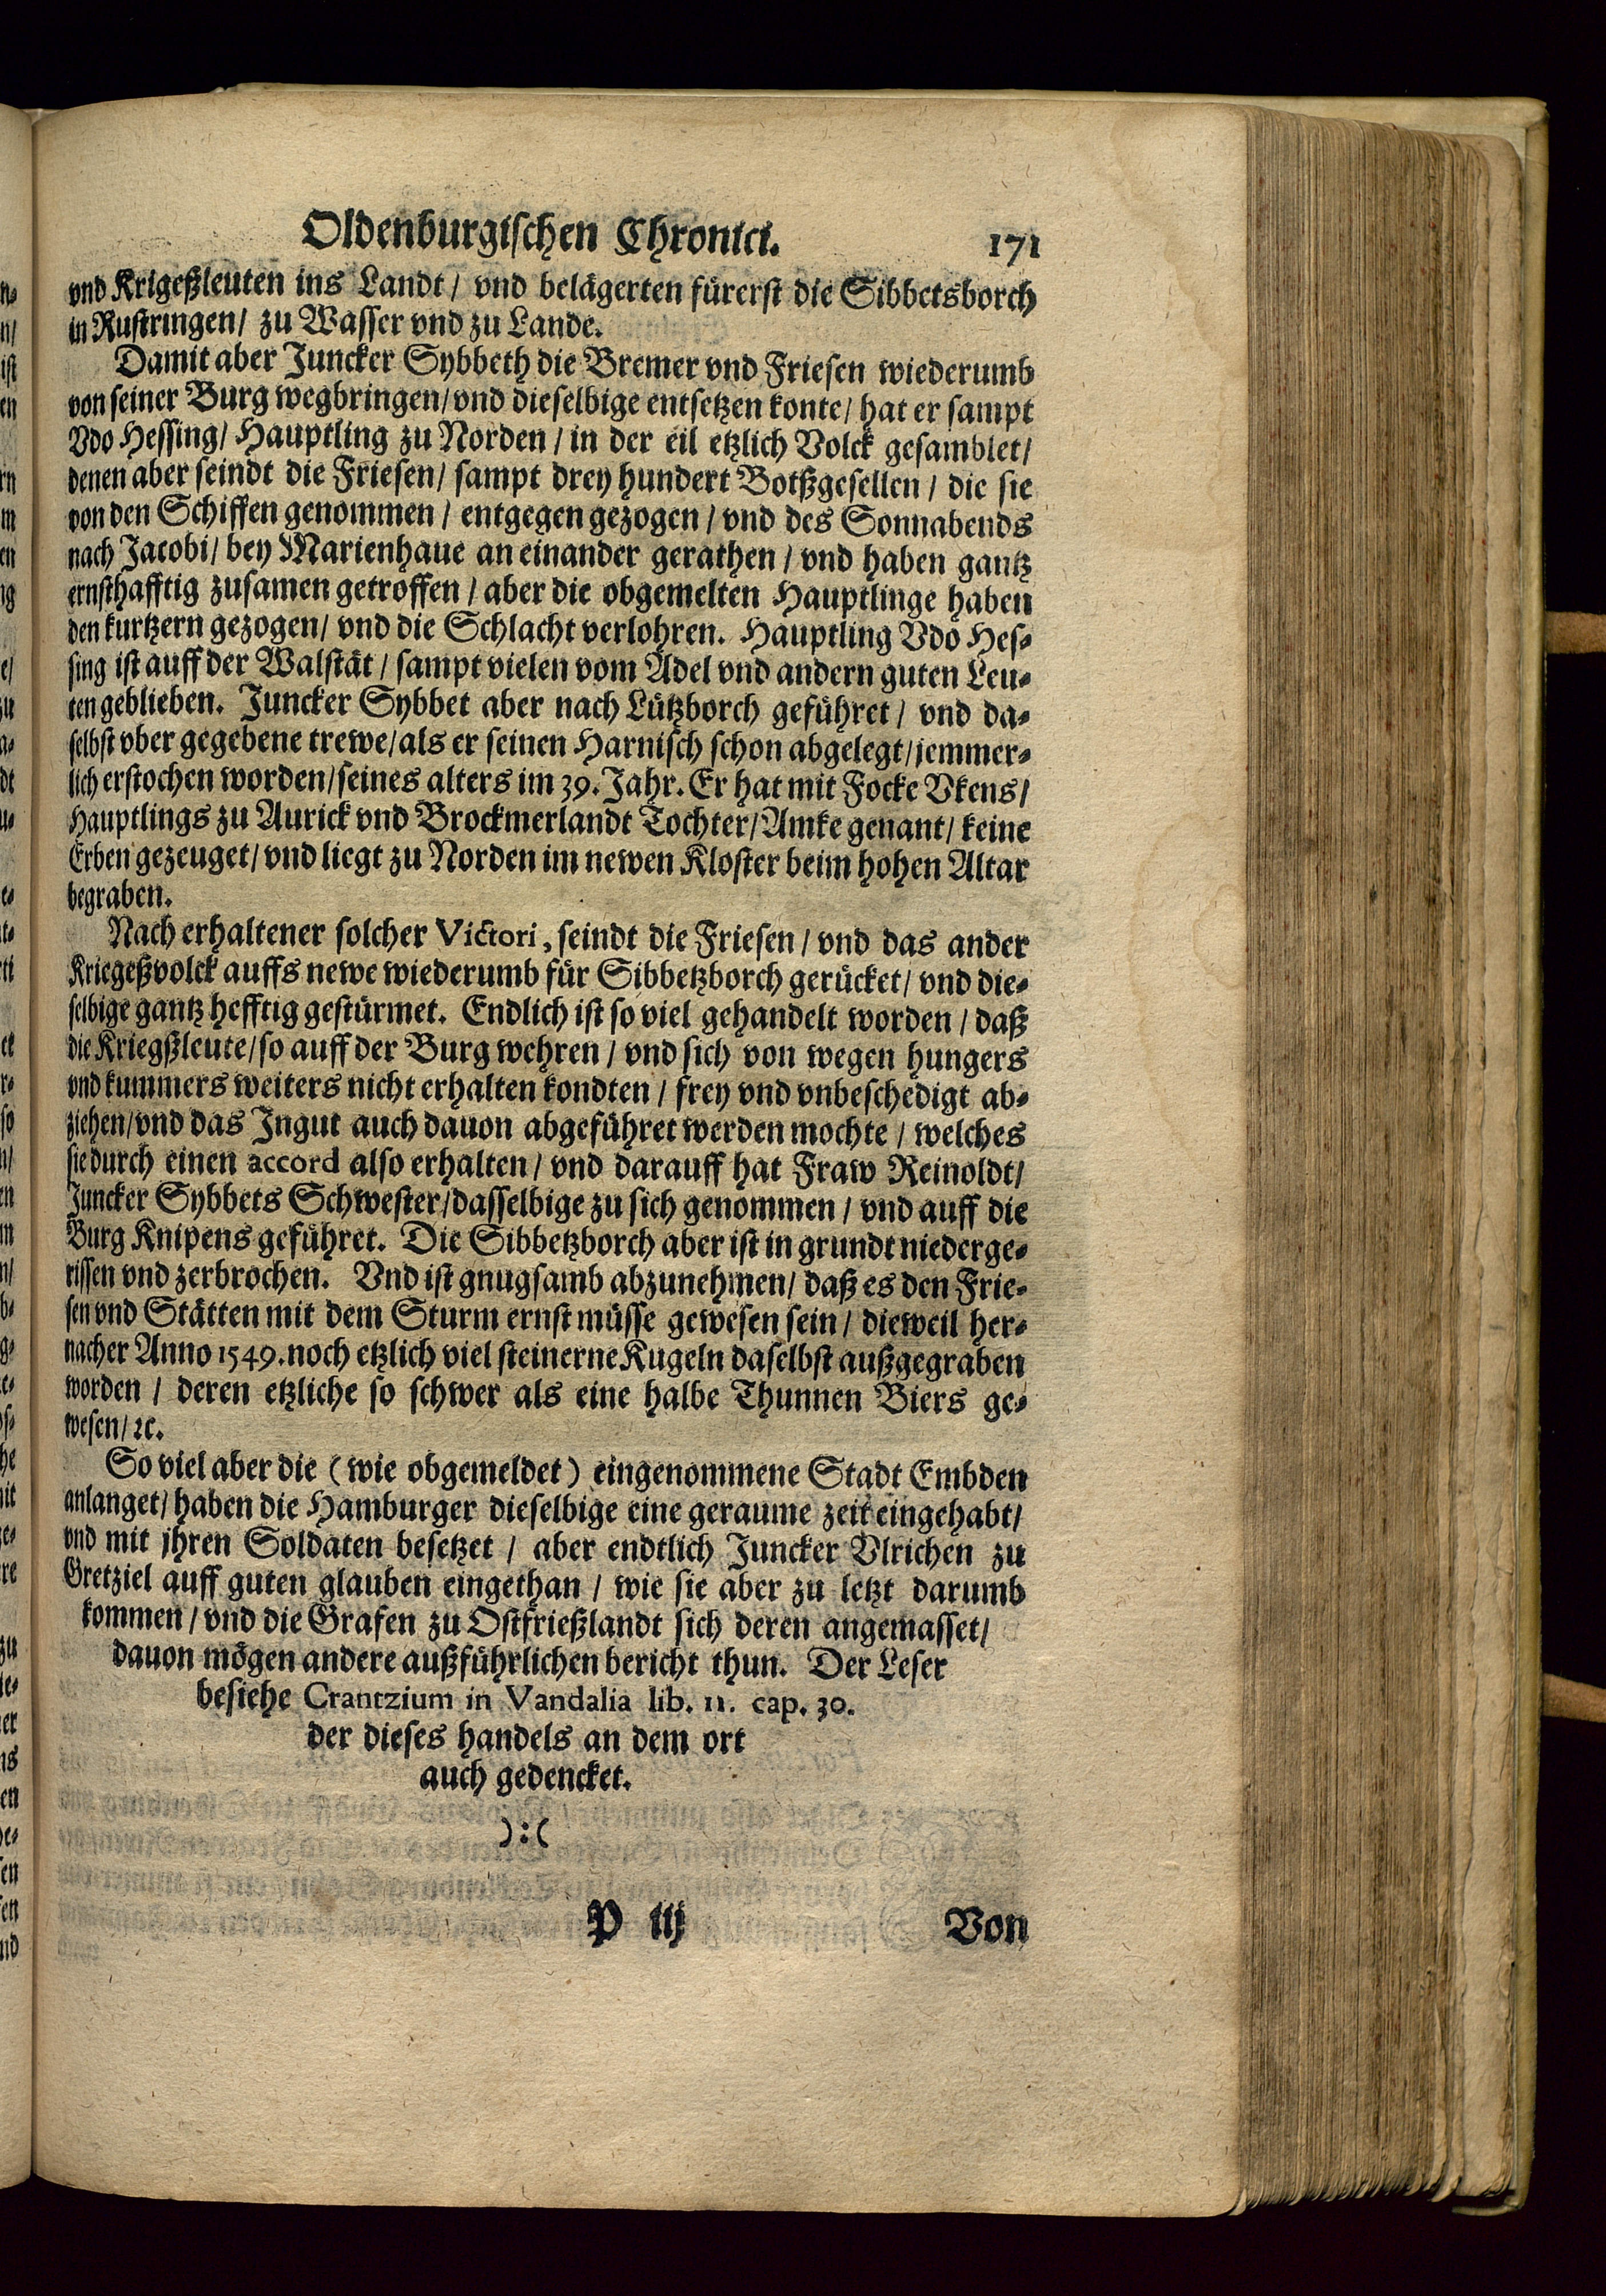 Oldenburgischen Chronici. 171
vnd Krigeßleuten ins Landt / vnd belägerten fürerst die Sibbetsborch
in Rustringen / zu Wasser vnd zu Lande.
Damit aber Juncker Sybbeth die Bremer vnd Friesen wiederumb
von seiner Burg wegbringen / vnd dieselbige entsetzen konte / hat er sampt
Vdo Hessing / Hauptling zu Norden / in der eil etzlich Volck gesamblet /
denen aber seindt die Friesen / sampt drey hundert Botßgesellen / die sie
von den Schiffen genommen / entgegen gezogen / vnd des Sonnabends
nach Jacobi / bey Marienhaue an einander gerathen / vnd haben gantz
ernsthafftig zusamen getroffen / aber die obgemelten Hauptlinge haben
den kurtzern gezogen / vnd die Schlacht verlohren. Hauptling Vdo Hes-
sing ist auff der Walstät / sampt vielen vom Adel vnd andern guten Leu-
ten geblieben. Juncker Sybbet aber nach Lützborch geführet / vnd da-
selbst vber gegebene trewe / als er seinen Harnisch schon abgelegt / jemmer-
lich erstochen worden / seines alters im 39. Jahr. Er hat mit Focke Vkens /
Hauptlings zu Aurick vnd Brockmerlandt Tochter / Amke genant / keine
Erben gezeuget / vnd liegt zu Norden im newen Kloster beim hohen Altar
begraben.
Nach erhaltener solcher Victori, seindt die Friesen / vnd das ander
Kriegeßvolck auffs newe wiederumb für Sibbetzborch gerücket / vnd die-
selbige gantz hefftig gestürmet. Endlich ist so viel gehandelt worden / daß
die Kriegßleute / so auff der Burg wehren / vnd sich von wegen hungers
vnd kummers weiters nicht erhalten kondten / frey vnd vnbeschedigt ab-
ziehen / vnd das Ingut auch dauon abgeführet werden mochte / welches
sie durch einen accord also erhalten / vnd darauff hat Fraw Reinoldt /
Juncker Sybbets Schwester / dasselbige zu sich genommen / vnd auff die
Burg Knipens geführet. Die Sibbetzborch aber ist in grundt niederge-
rissen vnd zerbrochen. Vnd ist gnugsamb abzunehmen / daß es den Frie-
sen vnd Stätten mit dem Sturm ernst müsse gewesen sein / dieweil her-
nacher Anno 1549. noch etzlich viel steinerne Kugeln daselbst außgegraben
worden / deren etzliche so schwer als eine halbe Thunnen Biers ge-
wesen / ꝛc.
So viel aber die (wie obgemeldet) eingenommene Stadt Embden
anlanget / haben die Hamburger dieselbige eine geraume zeit eingehabt /
vnd mit jhren Soldaten besetzet / aber endtlich Juncker Vlrichen zu
Gretziel auff guten glauben eingethan / wie sie aber zu letzt darumb
kommen / vnd die Grafen zu Ostfrießlandt sich deren angemasset /
dauon mögen andere außführlichen bericht thun. Der Leser
besiehe Crantzium in Vandalia lib. 11. cap. 30.
der dieses handels an dem ort
auch gedencket.
):(
P iij Von